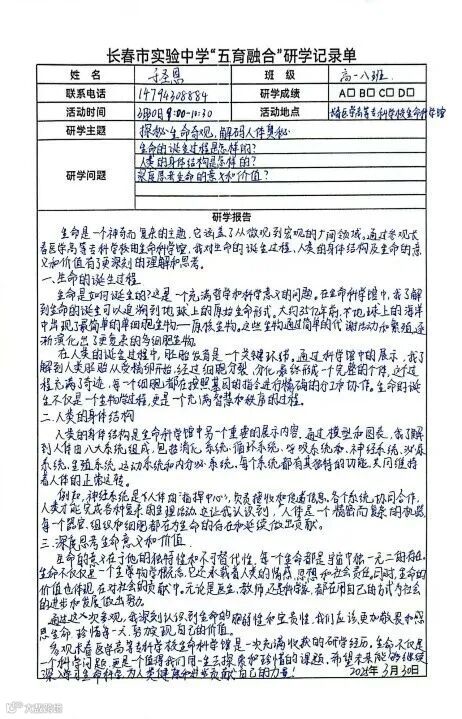 长春市实验中学“五育融合”研学记录单
姓名 班级 高一八班
联系电话 14794308884 研学成绩 A□ B□ C□ D□
活动时间 3月30日 9:00-10:30 活动地点 长春医学高等专科学校生命科学馆
研学主题 探秘生命奇观，解码人体奥秘
研学问题
生命的诞生过程是怎样的?
人类的身体结构是怎样的?
深度思考生命的意义和价值?
研学报告
生命是一个神奇而复杂的主题，它涵盖了从微观到宏观的广阔领域。通过参观长
春医学高等专科学校的生命科学馆，我对生命的诞生过程，人类的身体结构及生命的意
义和价值有了更深刻的理解和思考。
一、生命的诞生过程
生命是如何诞生的?这是一个充满哲学和科学意义的问题。在生命科学馆中，我了解
到生命的诞生可以追溯到地球上的原始生命形式。大约35亿年前，地球上的海洋
中出现了最简单的单细胞生物——原核生物。这些生物通过简单的代谢活动和繁殖，逐
渐演化出了更复杂的多细胞生物。
在人类的诞生过程中，胚胎发育是一个关键环节。通过科学馆中的展示，我了
解到人类胚胎从受精卵开始，经过细胞分裂、分化最终形成一个完整的个体，这个过
程充满了奇迹，每一个细胞都在按照基因的指令进行精确的分工和协作。生命的诞
生不仅是一个生物学过程，更是一个充满智慧和秩序的过程。
二、人类的身体结构
人类的身体结构是生命科学馆中另一个重要的展示内容。通过模型和图表，我了解
到人体由八大系统组成，包括消化系统、循环系统、呼吸系统、神经系统、泌尿
系统、生殖系统、运动系统和内分泌系统。每个系统都有其独特的功能，共同维持
着人体的正常运转。
例如，神经系统是人体的“指挥中心”，负责接收和传递信息。各个系统协同合作，
人类才能完成各种复杂的生理活动。这让我认识到，人体是一个精密而复杂的机器，
每一个器官、组织和细胞都在为生命的存在和延续做出贡献。
三、深度思考生命意义和价值
生命的意义在于他的独特性和不可替代性，每一个生命都是宇宙中独一无二的存在。
生命不仅仅是一个生物学概念，它还承载着人类的情感、思想和社会责任。同时，生命的价
值也体现在对社会的贡献中。无论是医生、教师还是科学家，都在用自己的方式为社会
的进步和发展做出努力。
通过这次参观，我深刻认识到生命的脆弱性和宝贵性，我们应该更加敬畏和感
恩生命，珍惜每一天，努力实现自己的价值。
参观长春医学高等专科学校生命科学馆是一次充满收获的研学经历。生命不仅是
一个科学问题，更是一个值得我们用一生去探索和珍惜的课题，希望未来能够继续
深入学习生命科学，为人类健康和进步贡献自己的力量！ 2025年3月30日